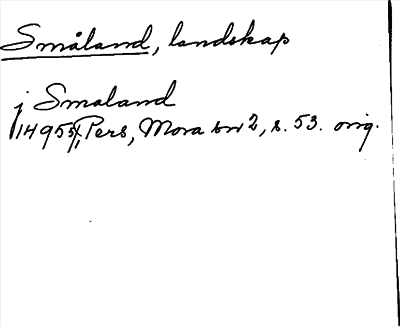 Småland, landskap
j Smaland
14955/4, Pers, Mora sn 2, s. 53. orig.